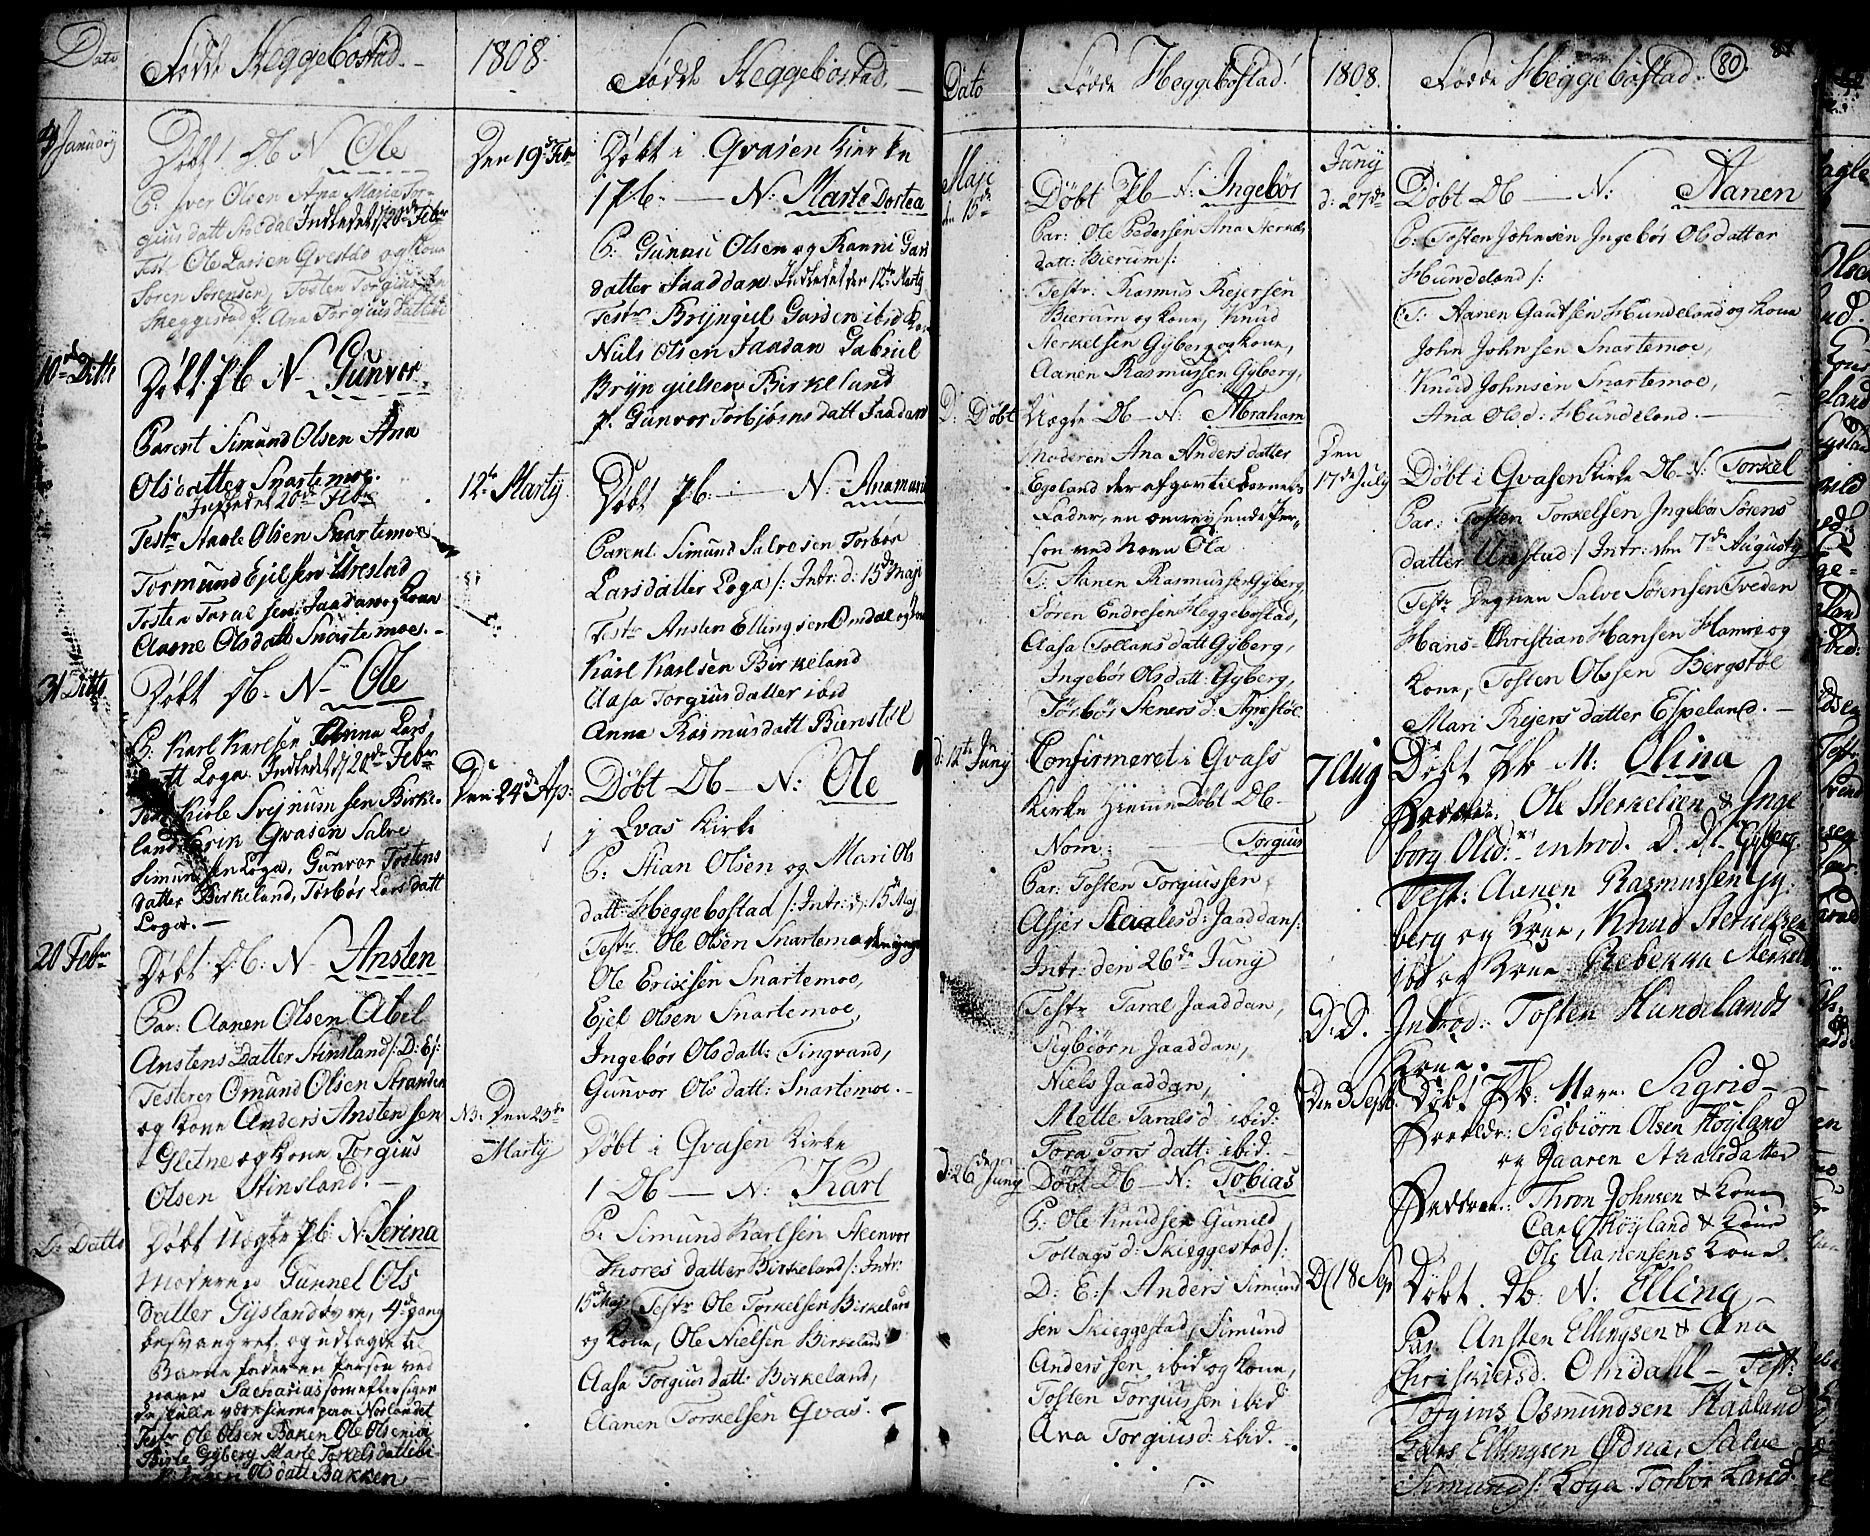 Dato
Fødde Heggebostad.
1808.
Fødde Heggebostad.
January
Døbt Db N Ole
P: Iver Olsen Ana Maria Tor-
gius datt Indledet d 20de Febr
Test Ole Larsen og Kona
Søren Sørensen, Tosten Torgiussen
Skeggestad p. Ana Torgiusdatter
10de Ditto
Døbt Pb N- Gunvor
Parent Simund Olsen Ana
Olsdatter Snartemoe.
Indledet 20de Febr
Testr Staale Olsen Snartemoe
Tormund Ejelsen Urestad
Tosten Taralsen Jaadan og Kona
Aanne Olsdatt Snartemoe. -
31 Ditto
Døbt Db. N- Ole
P: Karl Karlsen Anna Lars
datt Loga Indledet d 20de Febr
Svejnumsen Birke-
land, Gvasen Salve
Simunsen Loga, Gunvor Tostens
datter Birkeland, Torbør Larsdatt
Loga. -
20 Febr
Døbt Db: N- Ansten
Par: Aanen Olsen Abel
Anstens Datter Stinsland /: D: E /:
Testerer Omund Olsen Stranden
og Kone Anders Anstensen
Gletne og Kone Torgius
Olsen Stinsland. -
D: Datto
Døbt Uægte Pb: N: Serina
Moderen Gunnel Ols
datter Gysland 4de gang
besvangret, og udlagte til
Barnefader en Person ved
navn Sacharias som efter sigen
de skulle være hjemme paa Norlandet
Testr Ole Olsen Baken Ole Olsen
Birte Gyberg Marte Torkelsdatter
Olsdatt Bakken -
Den 19de Febr
Døbt i Qvasen Kierke
1 Pb. - N: Marte Dortea
P: Gunnu Olsen og Ranni Gars
datter Jaaddan Indledet den 12te Marty
Testr Bryngiel Garsen ibid
Niels Olsen Jaadan Gabriel
Bryngielsen Birkeland
p. Gunvor Torbjørns datt Jaadan
12te Marty
Døbt Pb: - N: Anamaria
Parent Simund Salvesen Torbor
Larsdatter Loga /: Intr: d: 15de Maji
Testr Ansten Ellingsen Omdal og Kone
Karl Karlsen Birkeland
Aasa Torgiusdatter ibid
Anna Rasmusdatt Bierstøl
Den 24de Ap:
Døbt Db - N: Ole
i Qvas Kirke
P: Stian Olsen og Mari Ols
datt: Heggebostad /: Intr: d: 15 Maj
Testr Ole Olsen Snartemo den yngre
Ole Erixsen Snartemoe,
Ejel Olsen Snartemoe,
Ingebør Olsdatt: Tingvand,
Gunvor Olsdatt: Snartemoe. -
NB: Den 25de
Marty
Døbt i Qvasen Kirke
1 Db - N: Karl
P: Simund Karlsen Steenvor
Thores datter Birkeland /: Intr:
15de Maj Testr Ole Torkelsen Birkeland
og Kone, Ole Nielsen Birkeland
Aasa Torgiusdatt: Birkeland,
Aanen Torkelsen Qvas. -
Dato
Fødde Heggebostad!
1808.
Fødde Heggebostad.
80.
Maji
den 15de
Døbt Pb N: Ingebør
Par: Ole Pedersen Ana Sterkels
datt: Bierum /:
Testr: Rasmus Rejersen
Bierum og Kone, Knud
Sterkelsen Gyberg og Kone,
Aanen Rasmussen Gyberg,
D: Døbt Uægte Db - N: Abraham
Moderen Ana Andersdatter
Egeland der afgav til Barnets
Fader, en omreysende Per-
son ved Navn Ola
T: Aanen Rasmussen Gyberg
Søren Endresen Heggebostad,
Aasa Tollansdatt Gyberg,
Ingebør Olsdatt: Gyberg,
Torbør Stenersd:
d: 12te Juny
Confirmeret i Qvass
Kirke Hiemme Døbt Db -
Nom: Torgius
Par: Tosten Torgiussen,
Asjer Staalesd: Jaaddan /:
Intr: den 26de Juny
Testr Taral Jaaddan,
Sigbiørn Jaaddan,
Niels Jaaddan,
Mette Taralsd: ibid:
Tora Torsdatt: ibid. -
d: 26de Juny
Døbt Db - N: Tobias
P: Ole Knudsen Gunild
Tollagsd: Skieggestad /:
D: E: /: Anders Simund
sen Skieggestad, Simund
Anderssen ibid og Kone,
Tosten Torgiussen ibid
Ana Torgiusd: ibid. -
Juny
d: 27de
Døbt Db - N: Aanen
P: Tosten Johnsen Ingebør Olsdatter
Hundeland /:
T: Aanen Gautsen Hundeland og Kone
John Johnsen Snartemoe,
Knud Johnsen Snartemoe,
Ana Olsd: Hundeland. -
Den
17de July
Døbt i Qvasen Kirke Db N: Torkel
Par: Tosten Torkelsen Ingebør Sørens
datter Urestad /: Intr: den 7de Augusty
Testr Degnen Salve Sørensen Tveden
Hans Christian Hansen Hamre og
Kone, Tosten Olssen Bergstøl
Mari Rejers datter Espeland. -
7 Aug
Døbt Pb N: Olina
Ole Sterkelsen & Inge
borg Olsd: introd. D. D. Gyberg.
Test: Aanen Rasmussen Gy-
berg og Kone, Knud Sterkelsen
ibd og Kone Rebekka Sterkels
D. D.
Introd: Tosten Hundelands
Kone. -
Den 3 Sept.
Døbt Pb: Navn Sigrid -
Forældr: Sigbiørn Olsen Høyland
og Gaaren Staalsdatter
Faddere: Thron Johnsen & Kone
Carl Høyland & Kone
Ole Aanensens Kone
D: 18 Sep
Døbt Db. N: Elling -
Par Ansten Ellingsen & Ana
Omdahl - Test:
Torgius Osmundsen Haaland
Lars Ellingsen Ødna, Salve
Simunds: Loga Torbor Larsd: